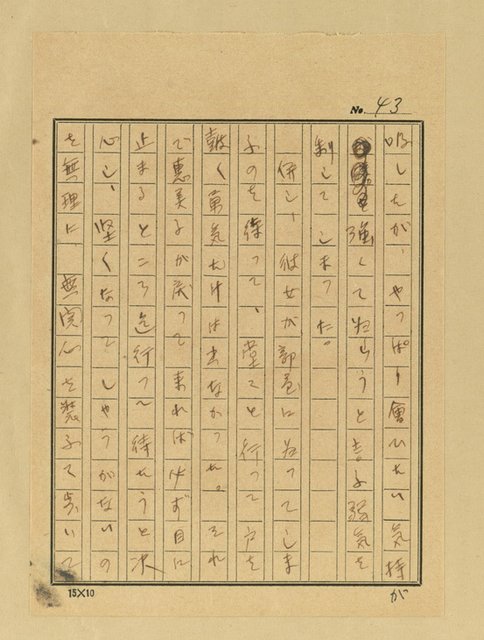 No. 43
したが、やっぱり會ひたい気持が
強くて帰らうと言ふ弱気を
制してしまった。
併し、彼女が部屋に帰ってしま
ふのを待って、堂々と行って戸を
敲く勇気だけは出なかった。それ
で惠美子が戻って来れば必ず目に
止まるところ迄行って待たうと決
心し、堅くなってしやうがないの
を無理に無関心を装ふて歩いて
15×10